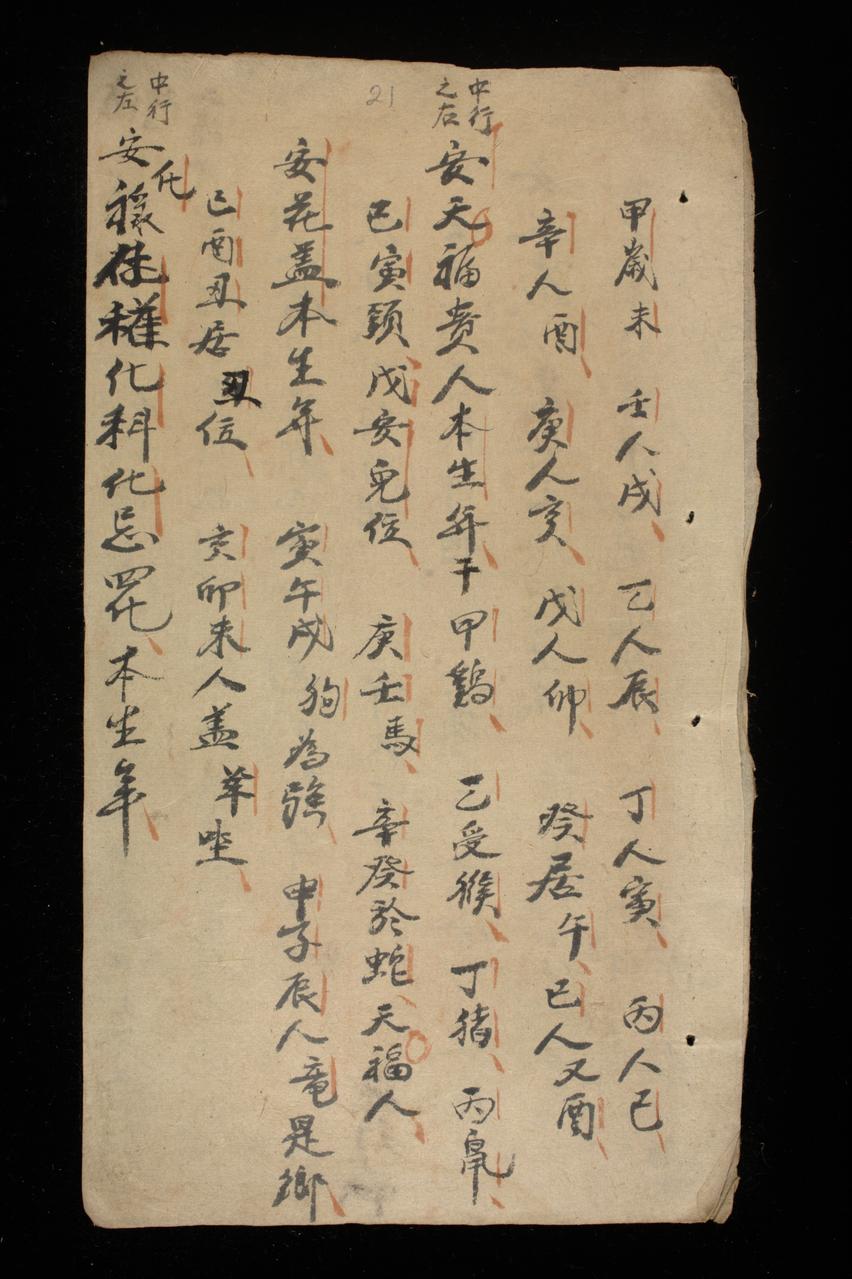 甲歲未 壬人戌 乙人辰 丁人寅 丙人巳
辛人酉 庚人亥 戊人卯 癸居午 己人又酉
中行之右
安天福贵人本生年干甲鷄 乙受猴 丁猪 丙鼠
己寅頭戊安兔位 庚壬馬 辛癸於蛇天福人
21
安花盖本生年 寅午戌狗為強 申子辰人竜是鄉
巳酉丑居丑位 亥卯未人盖羊坐
中行之左
安化祿化權化科化忌四化本生年